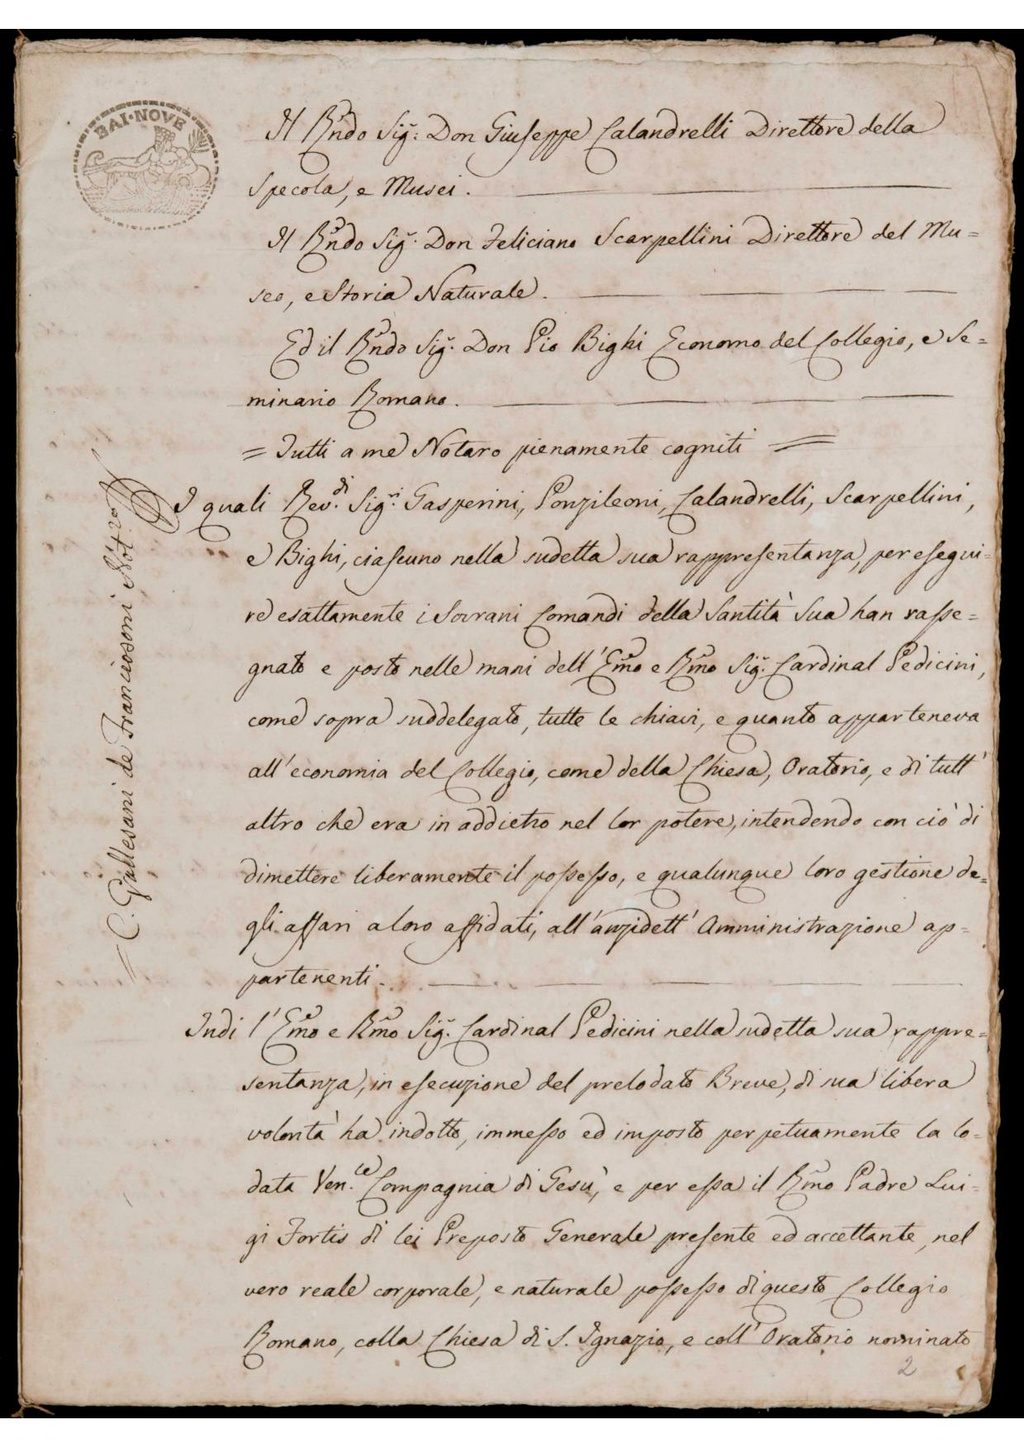 BAI·NOVE
Il R͞ndo Sig.r Don Giuseppe Calandrelli Direttore della
Specola, e Musei.
Il R͞ndo Sig.r Don Feliciano Scarpellini Direttore del Mu=
seo, e Storia Naturale.
Ed il R͞ndo Sig.r Don Pio Bighi Economo del Collegio, e Se=
minario Romano.
= Tutti a me Notaro pienamente cogniti =
I quali Rev.di Sig.ri Gasperini, Ponzileoni, Calandrelli, Scarpellini,
e Bighi, ciascuno nella sudetta sua rappresentanza, per esegui=
re esattamente i Sovrani Comandi della Santità Sua han rasse=
gnato e posto nelle mani dell'E͞mo e R͞mo Sig.r Cardinal Pedicini,
come sopra suddelegato, tutte le chiavi, e quanto apparteneva
all'economia del Collegio, come della Chiesa, Oratorio, e di tutt'
altro che era in addietro nel lor potere, intendendo con ciò di
dimettere liberamente il possesso, e qualunque loro gestione de=
gli affari a loro affidati, all'anzidett' Amministrazione ap=
partenenti.
Indi l'E͞mo e R͞mo Sig.r Cardinal Pedicini nella sudetta sua rappre=
sentanza, in esecuzione del prelodato Breve, di sua libera
volontà ha indotto, immesso ed imposto perpetuamente la lo=
data Ven.le Compagnia di Gesù, e per essa il R͞mo Padre Lui=
gi Fortis di lei Preposto Generale presente ed accettante, nel
vero reale corporale, e naturale possesso di questo Collegio
Romano, colla Chiesa di S. Ignazio, e coll' Oratorio nominato
2
= C. Gallesani de Franciosoni Not.